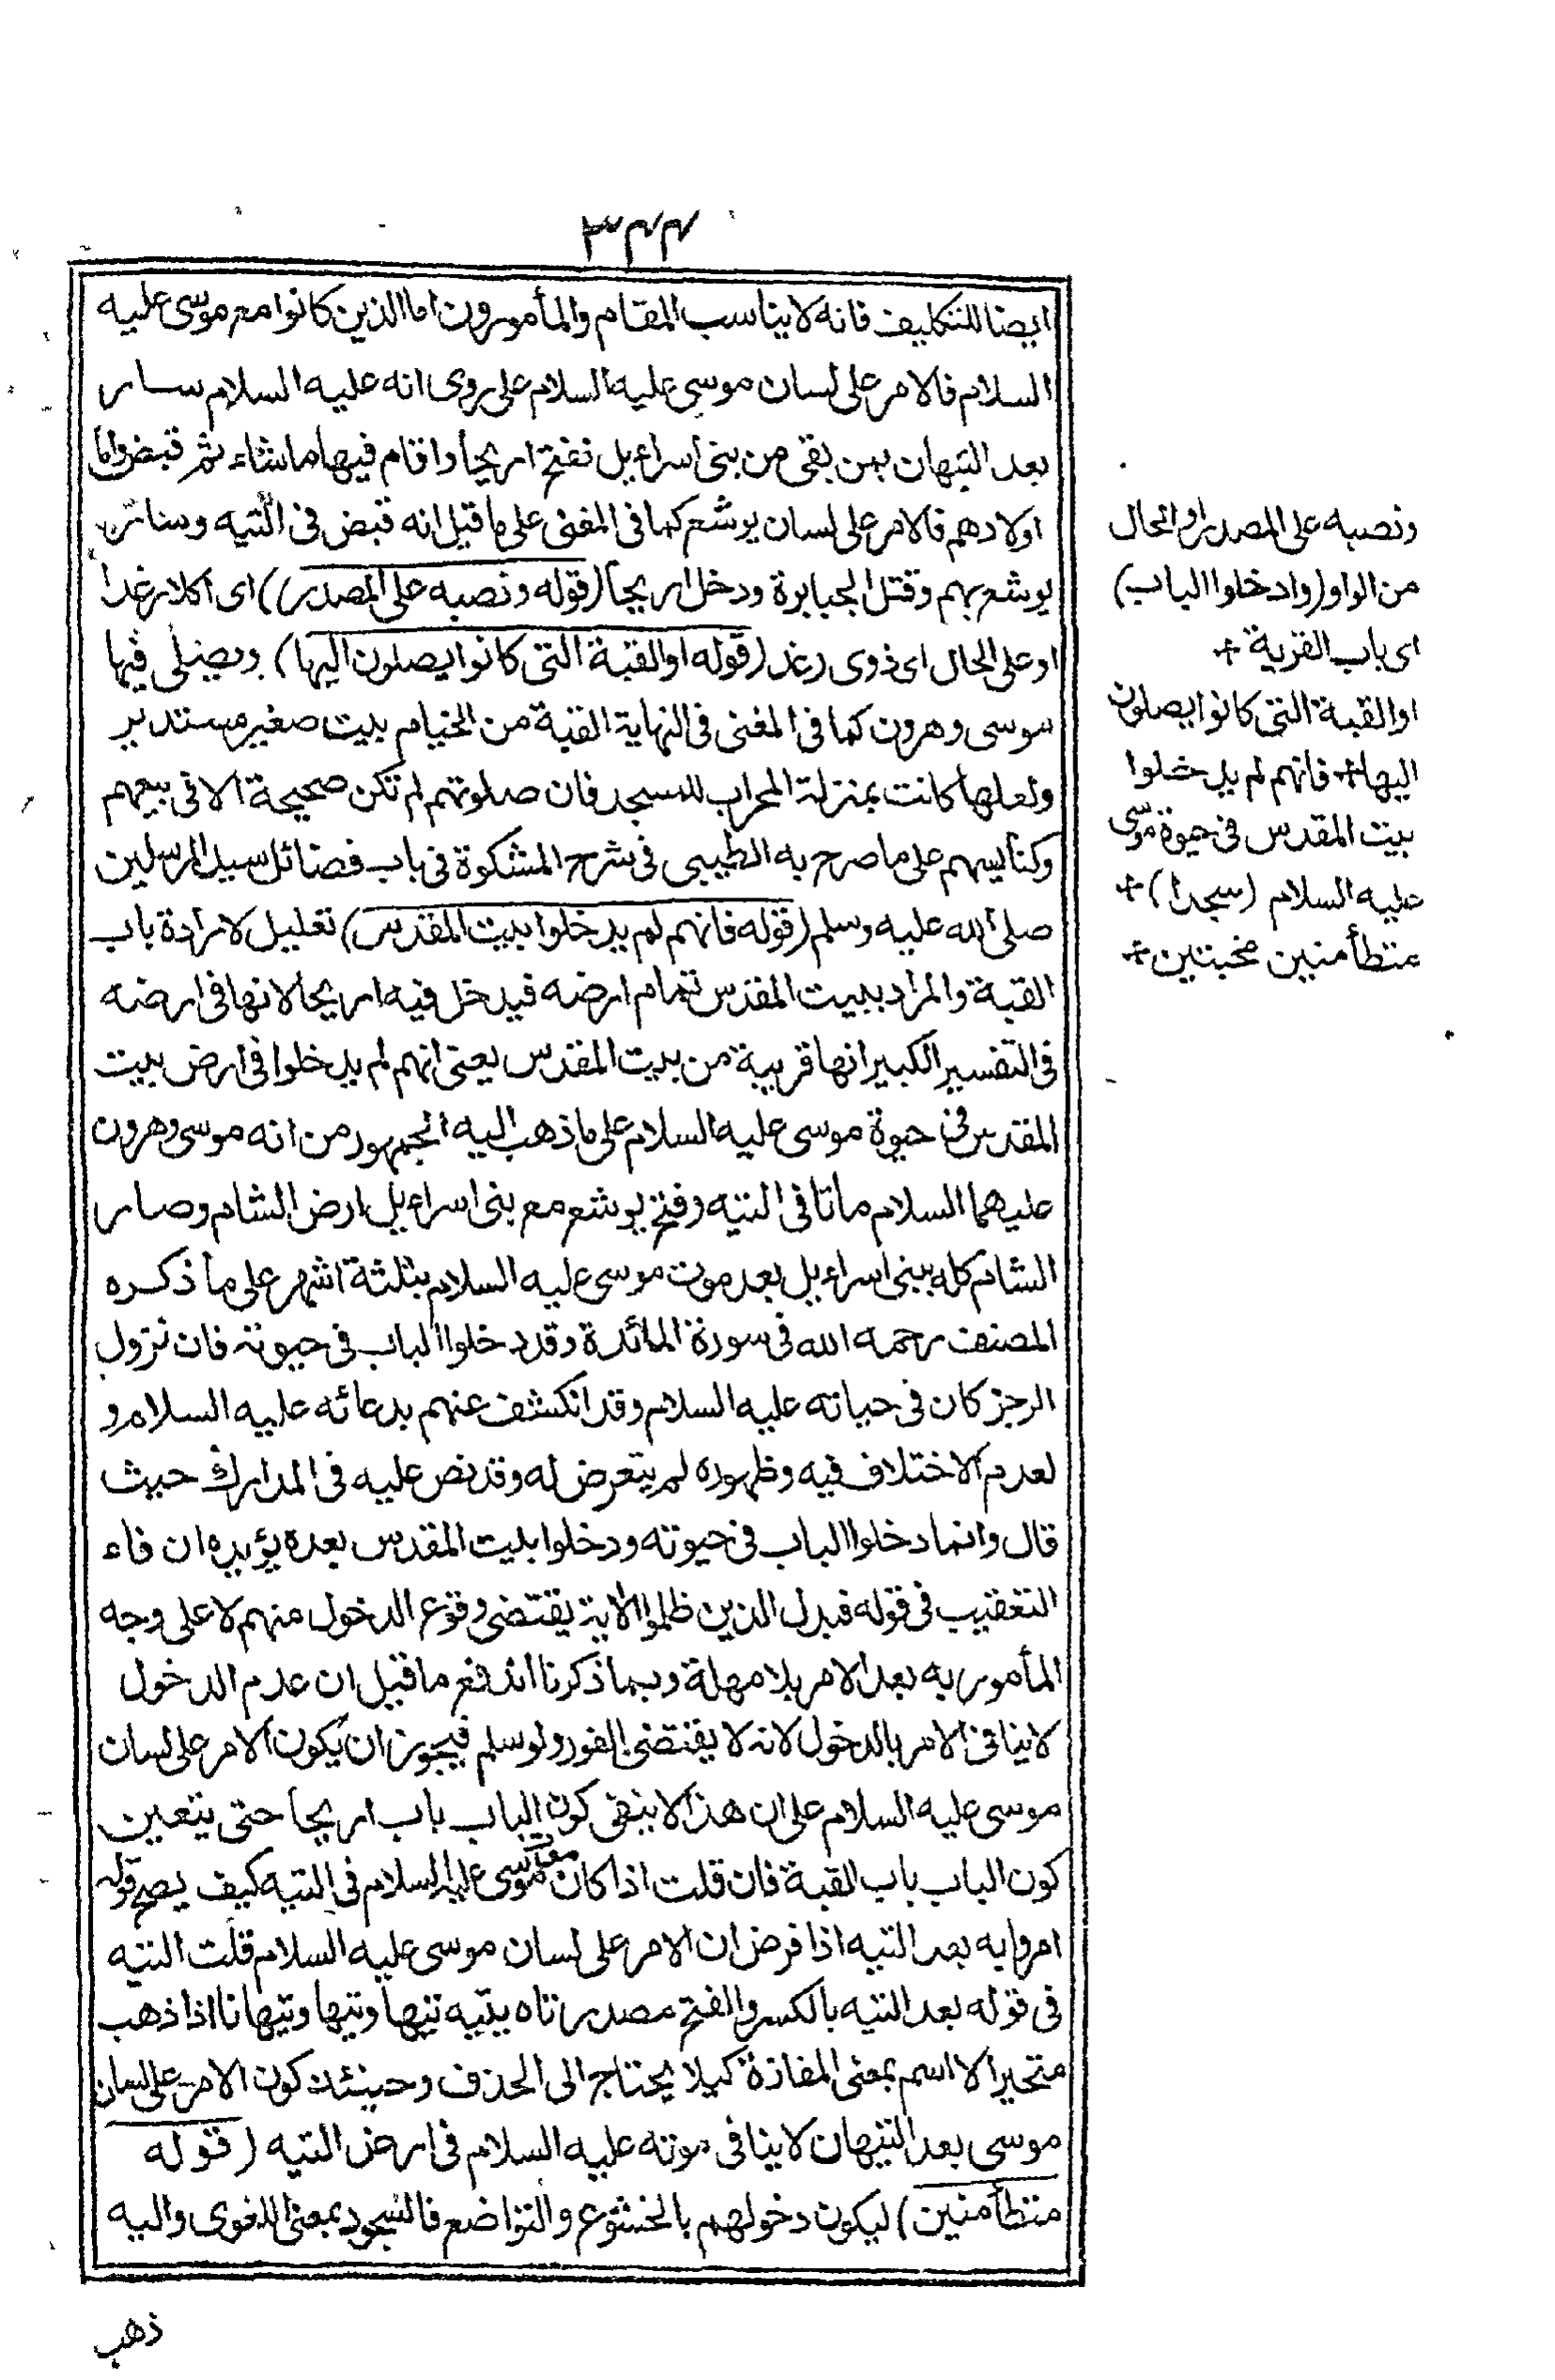 ٣٤٤
ايضا للتكليف فانه لا يناسب المقام والمأمورون اما الذين كانوا مع موسى عليه
السلام فالامر على لسان موسى عليه السلام على روى انه عليه السلام سار
بعد التيهان بمن بقى من بنى اسراءيل ففتح اريحا واقام فيها ما شاء ثم قبض واما
اولادهم فالامر على لسان يوشع كما فى المغنى على ما قيل انه قبض فى التيه وسار
يوشع بهم وقتل الجبابرة ودخل اريحا (قوله ونصبه على المصدر) اى اكلا رغدا
او على الحال اى ذوى رغد (قوله او القبة التى كانوا يصلون اليها) ويصلى فيها
موسى وهرون كما فى المغنى فى النهاية القبة من الخيام بيت صغير مستدير
ولعلها كانت بمنزلة المحراب للمسجد فان صلوتهم لم تكن صحيحة الا فى بيعهم
وكنأيسهم على ما صرح به الطيبى فى شرح المشكوة فى باب فضائل سيد المرسلين
صلى الله عليه وسلم (قوله فانهم لم يدخلوا بيت المقدس) تعليل لارادة باب
القبة والمراد ببيت المقدس تمام ارضه فيدخل فيه اريحا لانها فى ارضه
فى التفسير الكبير انها قريبة من بيت المقدس يعنى انهم لم يدخلوا فى ارض بيت
المقدس فى حيوة موسى عليه السلام على ما ذهب اليه الجمهور من انه موسى وهرون
عليهما السلام ماتا فى التيه وفتح يوشع مع بنى اسراءيل ارض الشام وصار
الشام كله ببنى اسراءيل بعد موت موسى عليه السلام بثلثة اشهر على ما ذكره
المصنف رحمه الله فى سورة المائدة وقد دخلوا الباب فى حيوته فان نزول
الرجز كان فى حياته عليه السلام وقد انكشف عنهم بدعائه عليه السلام و
لعدم الاختلاف فيه وظهوره لم يتعرض له وقد نص عليه فى المدارك حيث
قال وانما دخلوا الباب فى حيوته ودخلوا بيت المقدس بعده يؤيده ان فاء
التعقيب فى قوله فبدل الذين ظلموا الاية يقتضى وقوع الدخول منهم لا على وجه
المأمور به بعد الامر بلا مهلة وبما ذكرنا اندفع ما قيل ان عدم الدخول
لا ينافى الامر بالدخول لانه لا يقتضى الفور ولو سلم فيجوز ان يكون الامر على لسان
موسى عليه السلام على ان هذا لا ينفى كون الباب باب اريحا حتى يتعين
كون الباب باب القبة فان قلت اذا كان موسى عليه السلام فى التيه كيف يصح قوله
امروا به بعد التيه اذا فرض ان الامر على لسان موسى عليه السلام قلت التيه
فى قوله بعد التيه بالكسر والفتح مصدر تاه يتيه تيها وتيها وتيهانا اذا ذهب
متحيرا لا اسم بمعنى المفازة كيلا يحتاج الى الحذف وحينئذ كون الامر على لسان
موسى بعد التيهان لا ينافى موته عليه السلام فى ارض التيه (قوله
متطأمنين) ليكون دخولهم بالخشوع والتواضع فالسجود بمعنى اللغوى واليه
ذهب
ونصبه على المصدر او الحال
من الواو (وادخلوا الباب)
اى باب القرية +
او القبة التى كانوا يصلون
اليها + فانهم لم يدخلوا
بيت المقدس فى حيوة موسى
عليه السلام (سجدا) +
متطأمنين مخبتين +